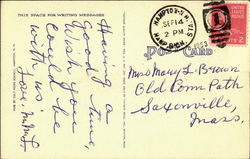 THIS SPACE FOR WRITING MESSAGES
Having a
good time,
Wish you
could be
with us.
Love
HAMPTON
SEP 14
2 PM
1953
POST CARD
Miss Mary L. Brown
Old Conn Path
Saxonville,
Mass.